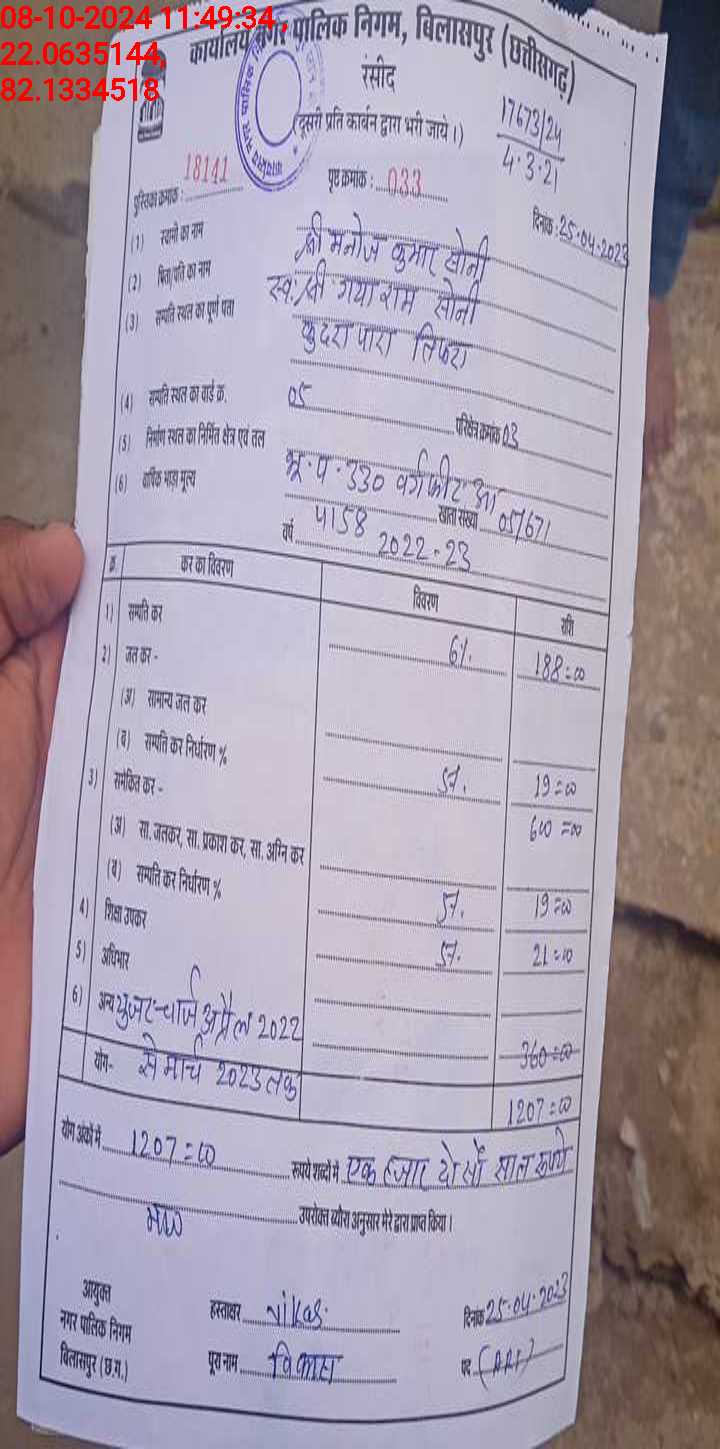 08-10-2024 11:49:34,
22.0635144,
82.1334518
कार्यालय नगर पालिक निगम, बिलासपुर (छत्तीसगढ़)
रसीद
(दूसरी प्रति कार्बन द्वारा भरी जाये।)
17673/24
4.3.21
पुस्तिका क्रमांक : 18141 पृष्ठ क्रमांक : 033
दिनांक : 25.04.2023
(1) स्वामी का नाम श्री मनोज कुमार सोनी
(2) पिता/पति का नाम स्व. श्री गया राम सोनी
(3) सम्पत्ति स्थल का पूर्ण पता कुदरा पारा तिफरा
(4) सम्पत्ति स्थल का वार्ड क्र. 05 परिक्षेत्र क्रमांक 03
(5) निर्माण स्थल का निर्मित क्षेत्र एवं तल भू.प.330 वर्गफीट
(6) वार्षिक भाड़ा मूल्य 4158 खाता संख्या 05/671
वर्ष 2022-23
क्र. कर का विवरण विवरण राशि
1) सम्पत्ति कर 6%. 188=00
2) जल कर -
(अ) सामान्य जल कर
(ब) सम्पत्ति कर निर्धारण % 19=00
3) समेकित कर - 600=00
(अ) सा. जलकर, सा. प्रकाश कर, सा. अग्नि कर
(ब) सम्पत्ति कर निर्धारण % 19=00
4) शिक्षा उपकर 21=00
5) अधिभार
6) अन्य युजर चार्ज अप्रैल 2022 360=00
योग- से मार्च 2023 तक 1207=00
योग अंकों में 1207=00 रूपये शब्दों में एक हजार दो सौ सात रूपये
उपरोक्त ब्यौरा अनुसार मेरे द्वारा प्राप्त किया।
आयुक्त
नगर पालिक निगम
बिलासपुर (छ.ग.)
हस्ताक्षर Vikas. दिनांक 25.04.2023
पूरा नाम विकास पद (ARI)